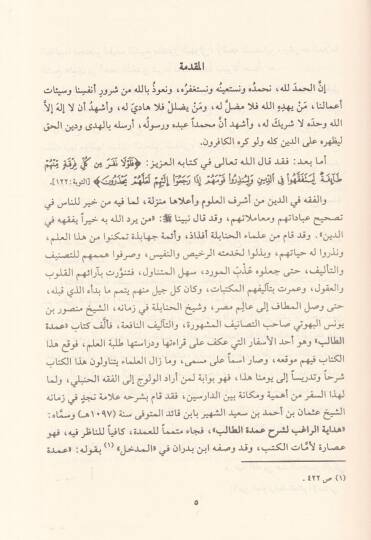 المقدمة
إنَّ الحمدَ لله، نحمدُه ونستعينُه ونستغفرُه، ونعوذُ بالله من شرورِ أنفسِنا وسيئات
أعمالنا، مَنْ يهدِهِ الله فلا مضلَّ له، ومَنْ يضللْ فلا هاديَ له، وأشهدُ أن لا إلهَ إلاَّ
الله وحدَه لا شريكَ له، وأشهد أنَّ محمداً عبده ورسولُه، أرسله بالهدى ودين الحق
ليظهره على الدين كله ولو كره الكافرون.
أما بعد: فقد قال الله تعالى في كتابه العزيز: ﴿فَلَوْلَا نَفَرَ مِن كُلِّ فِرْقَةٍ مِّنْهُمْ
طَآئِفَةٌ لِّيَتَفَقَّهُوا۟ فِى ٱلدِّينِ وَلِيُنذِرُوا۟ قَوْمَهُمْ إِذَا رَجَعُوٓا۟ إِلَيْهِمْ لَعَلَّهُمْ يَحْذَرُونَ﴾ [التوبة: ١٢٢].
والفقه في الدين من أشرف العلوم وأعلاها منزلة، لما فيه من خير للناس في
تصحيح عباداتهم ومعاملاتهم، وقد قال نبينا ﷺ: «من يرد الله به خيراً يفقهه في
الدين». وقد قام من علماء الحنابلة أفذاذ، وأئمة جهابذة تمكنوا من هذا العلم،
ونذروا له حياتهم، وبذلوا لخدمته الرخيص والنفيس، وصرفوا هممهم للتصنيف
والتأليف، حتى جعلوه عَذْبَ المورد، سهل المتناول، فتنوَّرت بآرائهم القلوب
والعقول، وعمرت بتآليفهم المكتبات، وكان كل جيل منهم يتمم ما بدأه الذي قبله،
حتى وصل المطاف إلى عالِم مصر، وشيخ الحنابلة في زمانه، الشيخ منصور بن
يونس البهوتي صاحب التصانيف المشهورة، والتآليف النافعة، فألَّف كتاب «عمدة
الطالب» وهو أحد الأسفار التي عكف على قراءتها ودراستها طلبة العلم، فوقع هذا
الكتاب فيهم موقعه، وصار اسماً على مسمى، وما زال العلماء يتناولون هذا الكتاب
شرحاً وتدريساً إلى يومنا هذا، فهو بوابة لمن أراد الولوج إلى الفقه الحنبلي، ولما
لهذا السفر من أهمية ومكانة بين الدارسين، فقد قام بشرحه علامة نجدٍ في زمانه
الشيخ عثمان بن أحمد بن سعيد الشهير بابن قائد المتوفى سنة (١٠٩٧هـ) وسمَّاه:
«هداية الراغب لشرح عمدة الطالب»، فجاء متمماً للعمدة، كافياً للناظر فيه، فهو
عصارة لأمَّات الكتب، وقد وصفه ابن بدران في «المدخل» (١) بقوله: «عمدة
(١) ص ٤٢٢ .
٥